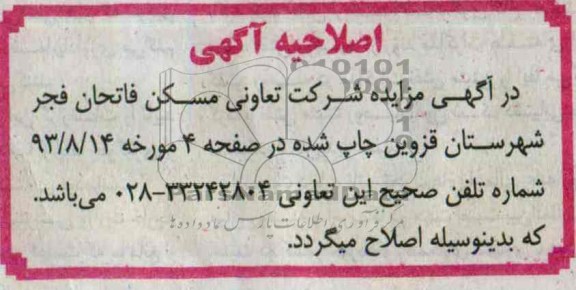 اصلاحیه آگهی
در آگهی مزایده شرکت تعاونی مسکن فاتحان فجر
شهرستان قزوین چاپ شده در صفحه ۴ مورخه ۹۳/۸/۱۴
شماره تلفن صحیح این تعاونی ۳۳۲۴۲۸۰۴-۰۲۸ می‌باشد.
که بدینوسیله اصلاح میگردد.